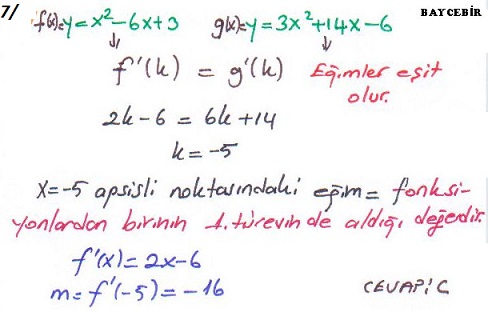 7/ f(x)=y=x²-6x+3 g(x)=y=3x²+14x-6 BAYCEBİR
f'(k) = g'(k) Eğimler eşit
olur.
2k-6 = 6k+14
k=-5
x=-5 apsisli noktasındaki eğim= fonksi-
yonlardan birinin 1. türevinde aldığı değerdir.
f'(x)=2x-6
m=f'(-5)=-16 CEVAP: C